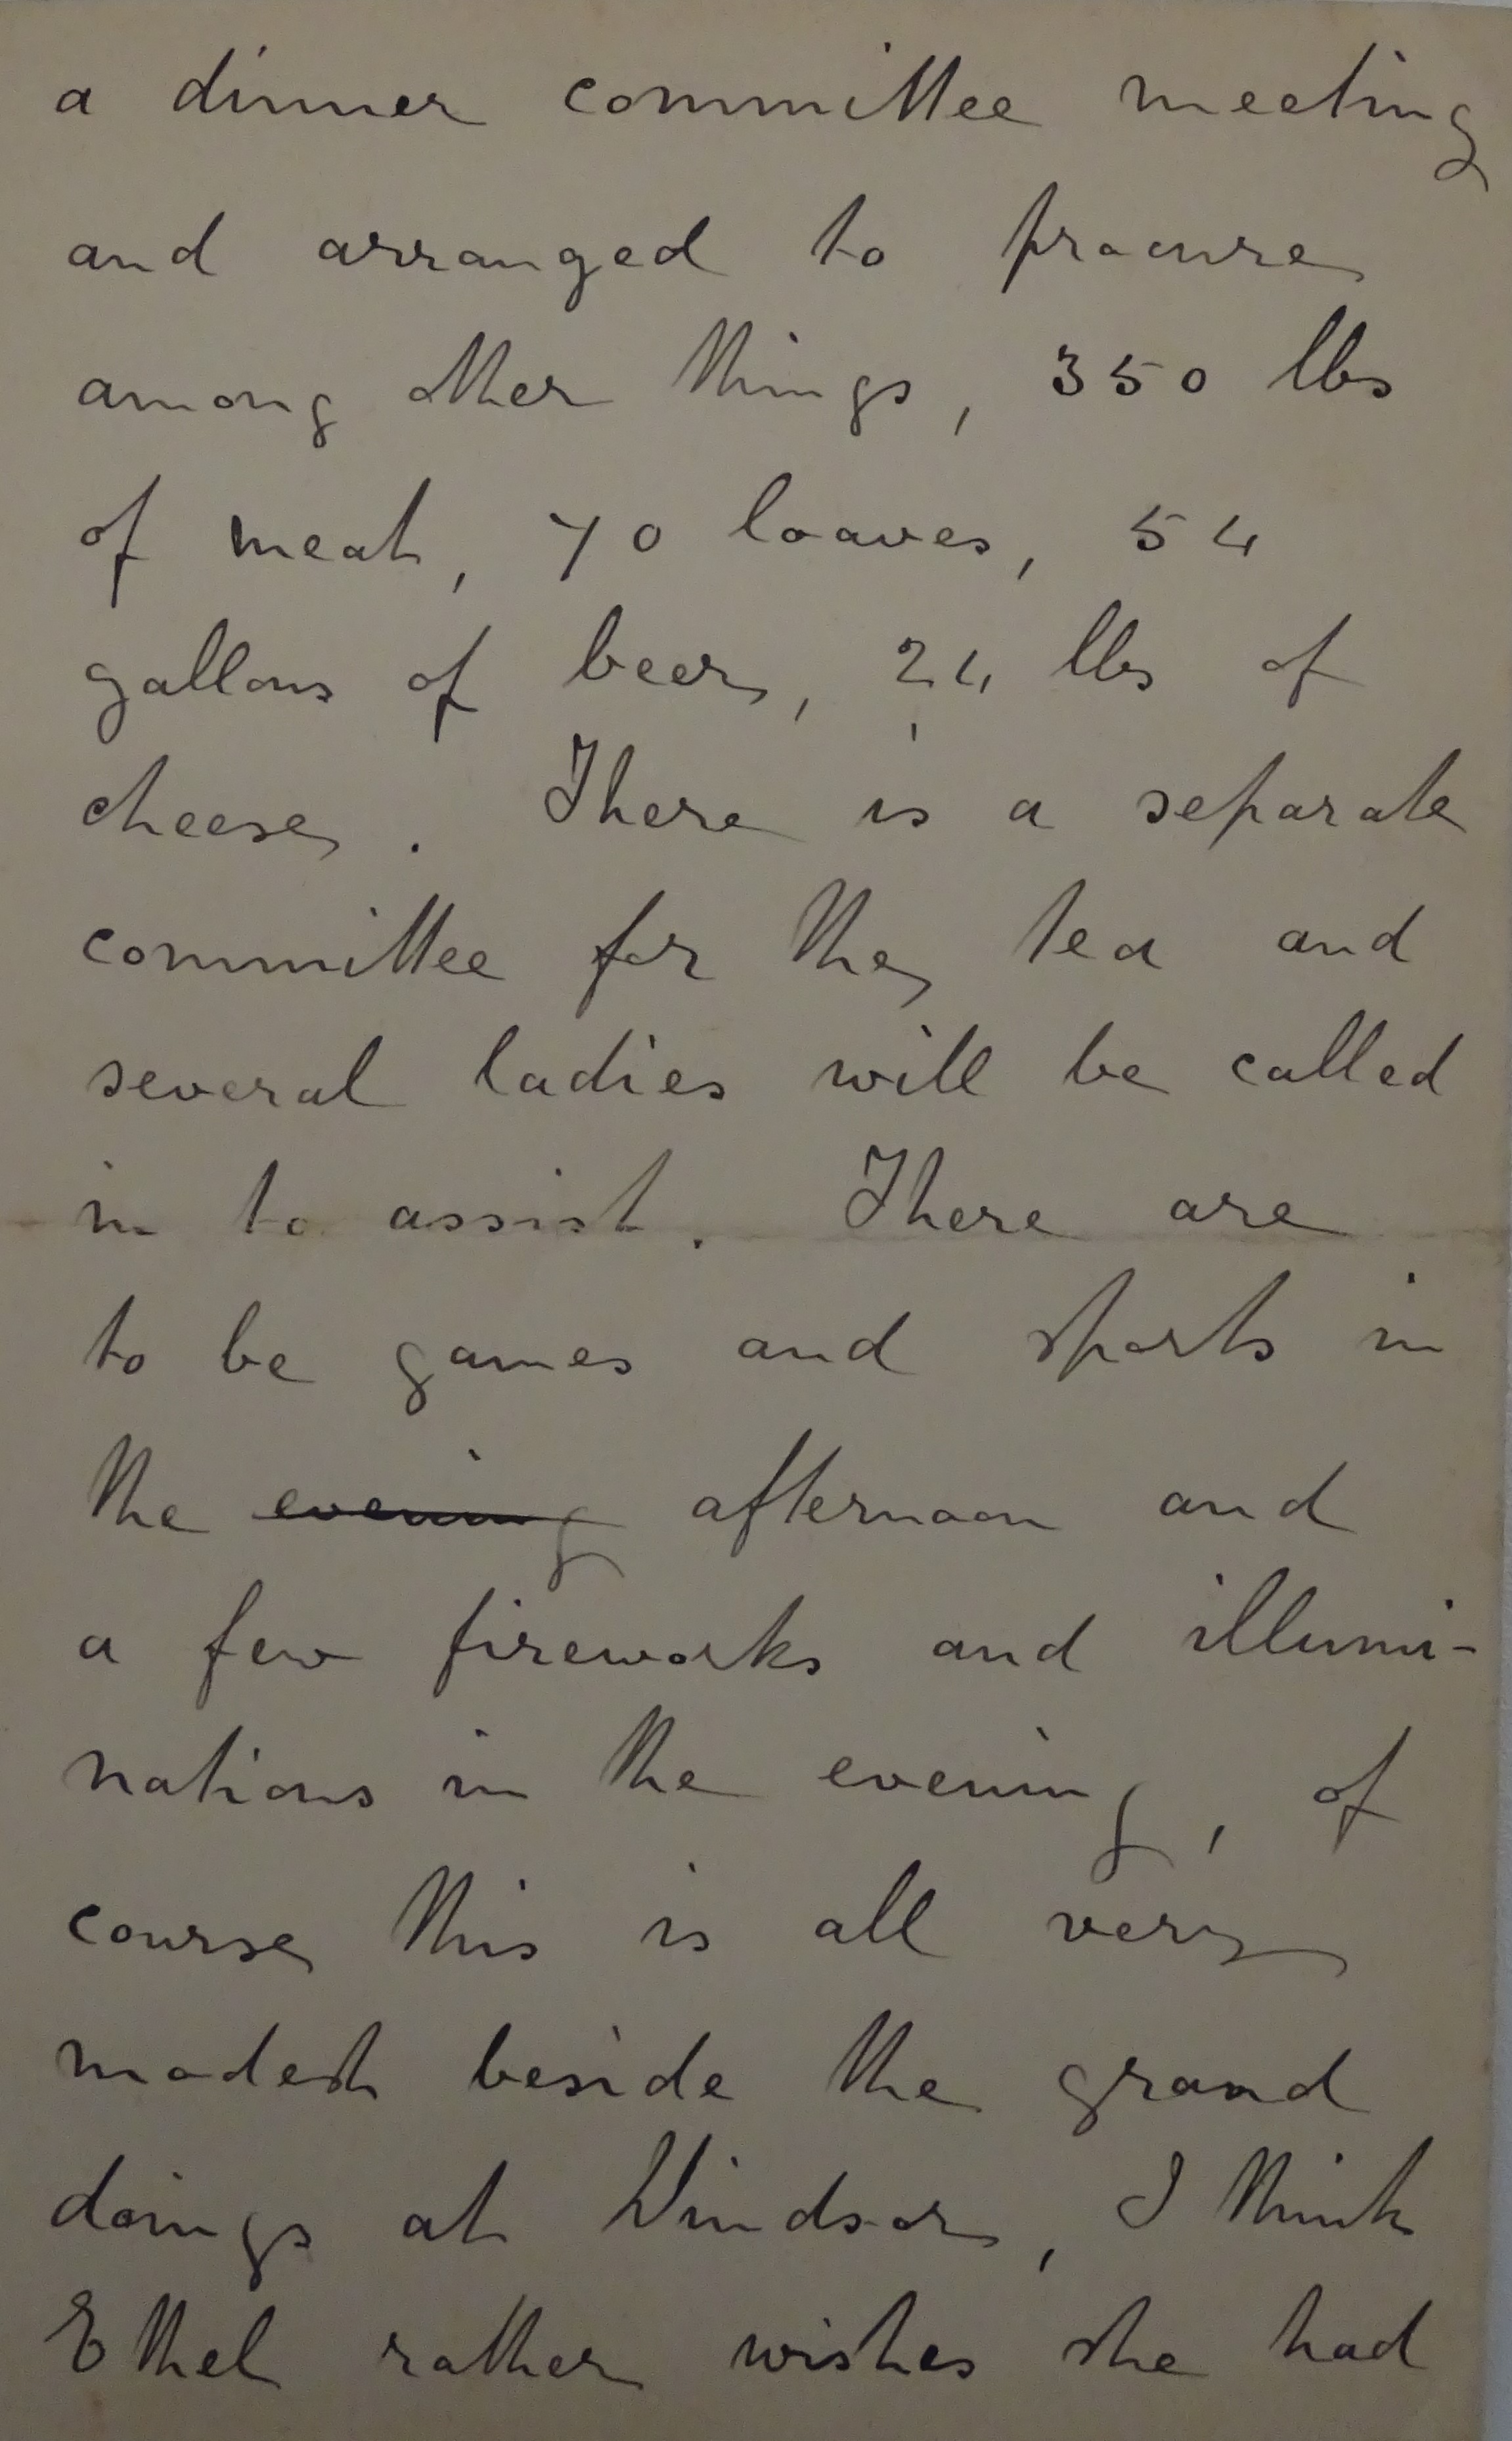 a dinner committee meeting
and arranged to procure
among other things, 350 lbs
of meat, 70 loaves, 54
gallons of beer, 24 lbs of
cheese. There is a separate
committee for the tea and
several ladies will be called
in to assist. There are
to be games and sports in
the ~~evening~~ afternoon and
a few fireworks and illumi-
nations in the evening, of
course this is all very
modest beside the grand
doings at Windsor, I think
Ethel rather wishes she had